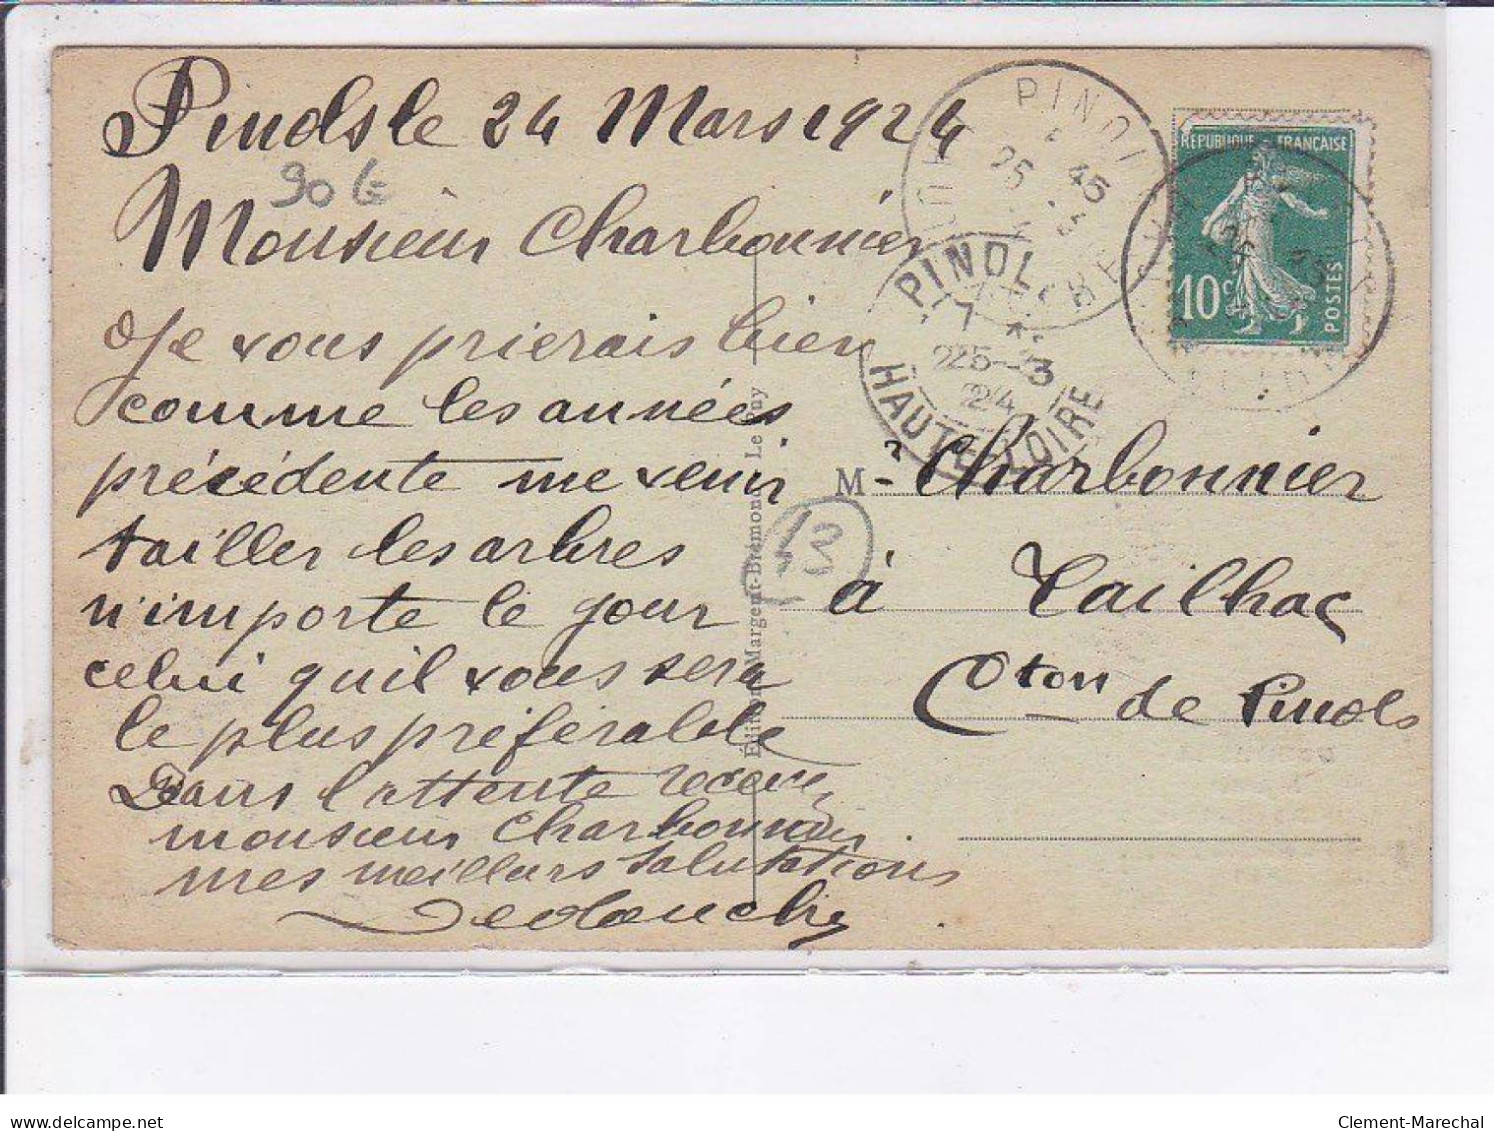 Pinols le 24 Mars 1924
90 G
Monsieur Charbonnier
Je vous prierais bien
comme les années
précédente me venir
tailler les arbres
n'importe le jour
celui qu'il vous sera
le plus préférable
Dans l'attente recevez
monsieur Charbonnier
mes meillurs salutations
Édition Margerit-Brémond Le Puy
13
PINOLS
25 3
24
HAUTE-LOIRE
PINOLS
45
25
RÉPUBLIQUE FRANÇAISE
10c
POSTES
M r Charbonnier
à Tailhac
Cton de Pinols
Clement-Marechal